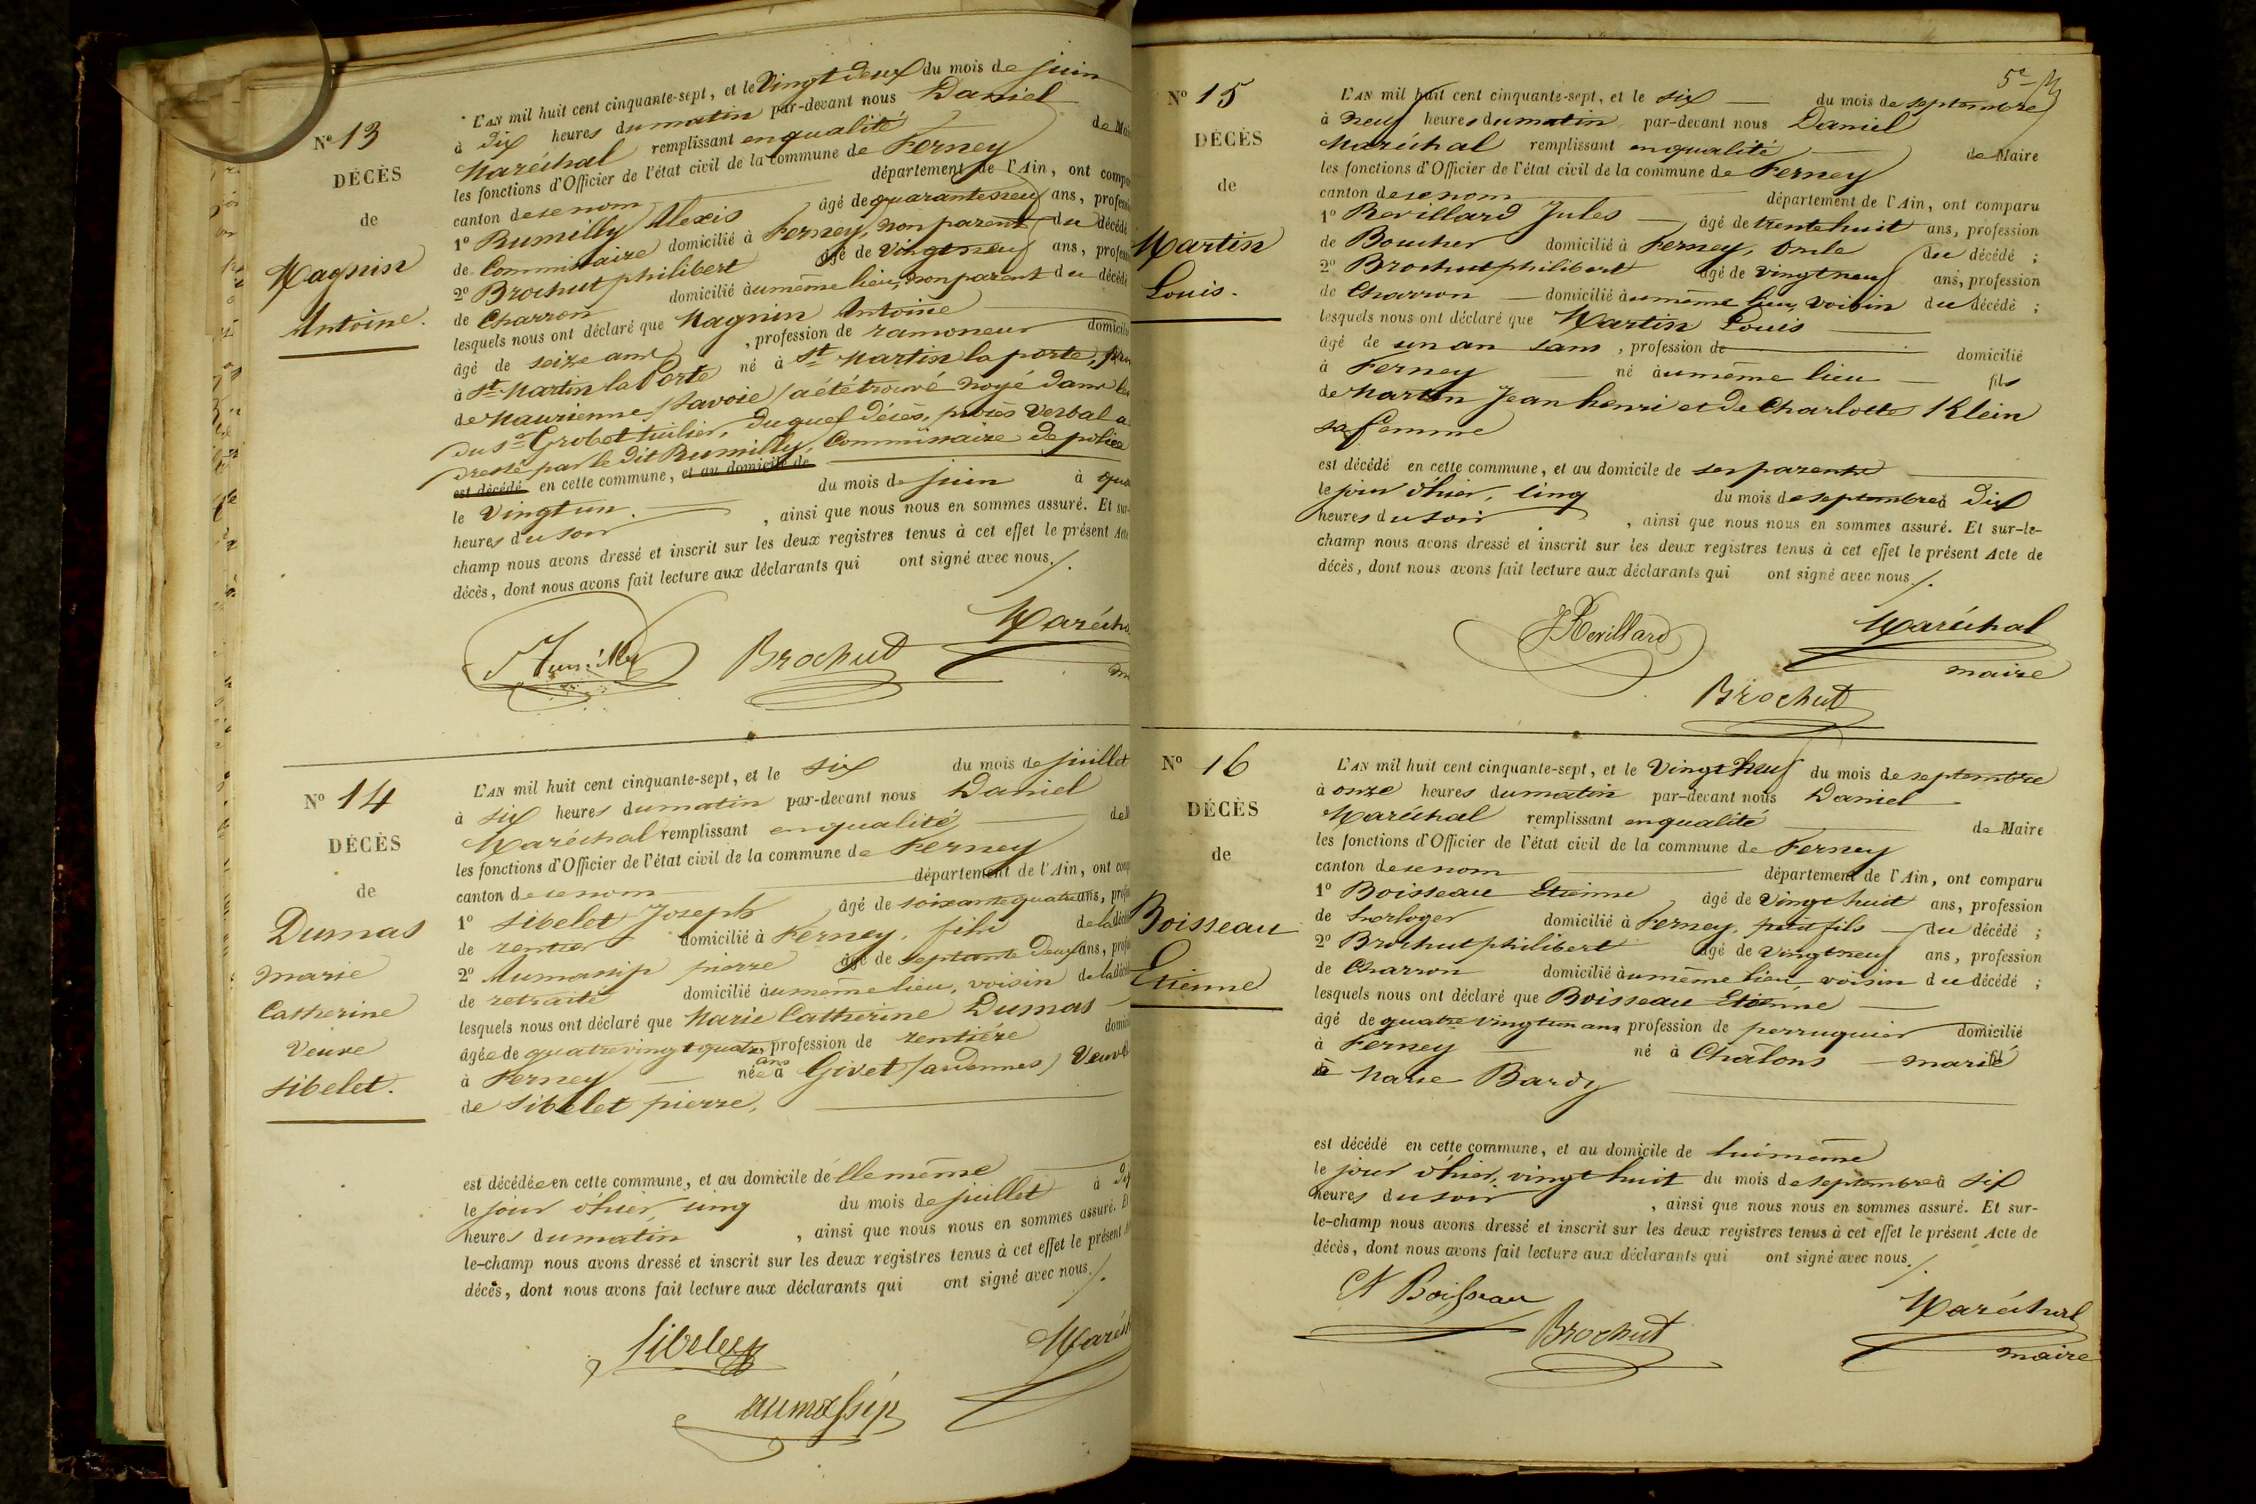 N° 13
DÉCÈS
de
Magnin
Antoine.
L'AN mil huit cent cinquante-sept, et le Vingt deux du mois de juin
à dix heures du matin par-devant nous Daniel
Maréchal remplissant en qualité de Mai
les fonctions d'Officier de l'état civil de la commune de Ferney
canton de ce nom département de l'Ain, ont compa
1° Rumilly Alexis âgé de quarante neuf ans, profess
de Commissaire domicilié à Ferney, non parent du décédé
2° Brochut philibert âgé de Vingt neuf ans, profess
de Charron domicilié au même lieu, non parent du décédé
lesquels nous ont déclaré que Magnin Antoine
âgé de seize ans, profession de ramoneur domicili
à St Martin la Porte né à St Martin la porte,
de Maurienne (Savoie) a été trouvé noyé dans
du Sr Grobet tuilier, duquel décès, procès Verbal a
dressé par le dit Rumilly, Commissaire de police
est décédé en cette commune, et au domicile de
le Vingt un. du mois de juin à
heures du soir, ainsi que nous nous en sommes assuré. Et sur-
champ nous avons dressé et inscrit sur les deux registres tenus à cet effet le présent Acte
décès, dont nous avons fait lecture aux déclarants qui ont signé avec nous./.
Rumilly Brochut Marécha
N° 14
DÉCÈS
de
Dumas
marie
Catherine
Veuve
Sibelet.
L'AN mil huit cent cinquante-sept, et le six du mois de juillet
à six heures du matin par-devant nous Daniel
Maréchal remplissant en qualité de M
les fonctions d'Officier de l'état civil de la commune de Ferney
canton de ce nom département de l'Ain, ont comp
1° Sibelet Joseph âgé de soixante quatre ans, profes
de rentier domicilié à Ferney, fils de la décéd
2° Aumassip pierre âgé de septante deux ans, profes
de retraité domicilié au même lieu, voisin de la décéd
lesquels nous ont déclaré que Marie Catherine Dumas
âgée de quatre vingt quatre ans, profession de rentière domici
à Ferney née à Givet (ardennes) Veuve
de Sibelet pierre,
est décédée en cette commune, et au domicile d'elle même
le jour d'hier cinq du mois de juillet à
heures du matin, ainsi que nous nous en sommes assuré. Et
le-champ nous avons dressé et inscrit sur les deux registres tenus à cet effet le présent A
décès, dont nous avons fait lecture aux déclarants qui ont signé avec nous./.
Sibelet Maréch
aumassip
N° 15
DÉCÈS
de
Martin
Louis.
5e
L'AN mil huit cent cinquante-sept, et le six du mois de septembre
à neuf heures du matin par-devant nous Daniel
Maréchal remplissant en qualité de Maire
les fonctions d'Officier de l'état civil de la commune de Ferney
canton de ce nom département de l'Ain, ont comparu
1° Revillard Jules âgé de trente huit ans, profession
de Boucher domicilié à Ferney, Oncle du décédé ;
2° Brochut philibert âgé de vingt neuf ans, profession
de Charron domicilié au même lieu, voisin du décédé ;
lesquels nous ont déclaré que Martin Louis
âgé de un an sans, profession de domicilié
à Ferney né au même lieu fils
de Martin Jean henri et de Charlotte Klein
sa femme
est décédé en cette commune, et au domicile de ses parents
le jour d'hier, cinq du mois de septembre à dix
heures du soir, ainsi que nous nous en sommes assuré. Et sur-le-
champ nous avons dressé et inscrit sur les deux registres tenus à cet effet le présent Acte de
décès, dont nous avons fait lecture aux déclarants qui ont signé avec nous./.
JRevillard Maréchal
maire
Brochut
N° 16
DÉCÈS
de
Boisseau
Etienne
L'AN mil huit cent cinquante-sept, et le Vingt neuf du mois de septembre
à onze heures du matin par-devant nous Daniel
Maréchal remplissant en qualité de Maire
les fonctions d'Officier de l'état civil de la commune de Ferney
canton de ce nom département de l'Ain, ont comparu
1° Boisseau Etienne âgé de vingt huit ans, profession
de horloger domicilié à Ferney, petit fils du décédé ;
2° Brochut philibert âgé de vingt neuf ans, profession
de Charron domicilié au même lieu voisin du décédé ;
lesquels nous ont déclaré que Boisseau Etienne
âgé de quatre vingt un ans profession de perruquier domicilié
à Ferney né à Châlons marié
à Marie Bardy
est décédé en cette commune, et au domicile de lui même
le jour d'hier, vingt huit du mois de septembre à six
heures du soir, ainsi que nous nous en sommes assuré. Et sur-
le-champ nous avons dressé et inscrit sur les deux registres tenus à cet effet le présent Acte de
décès, dont nous avons fait lecture aux déclarants qui ont signé avec nous./.
Boisseau Maréchal
Brochut maire